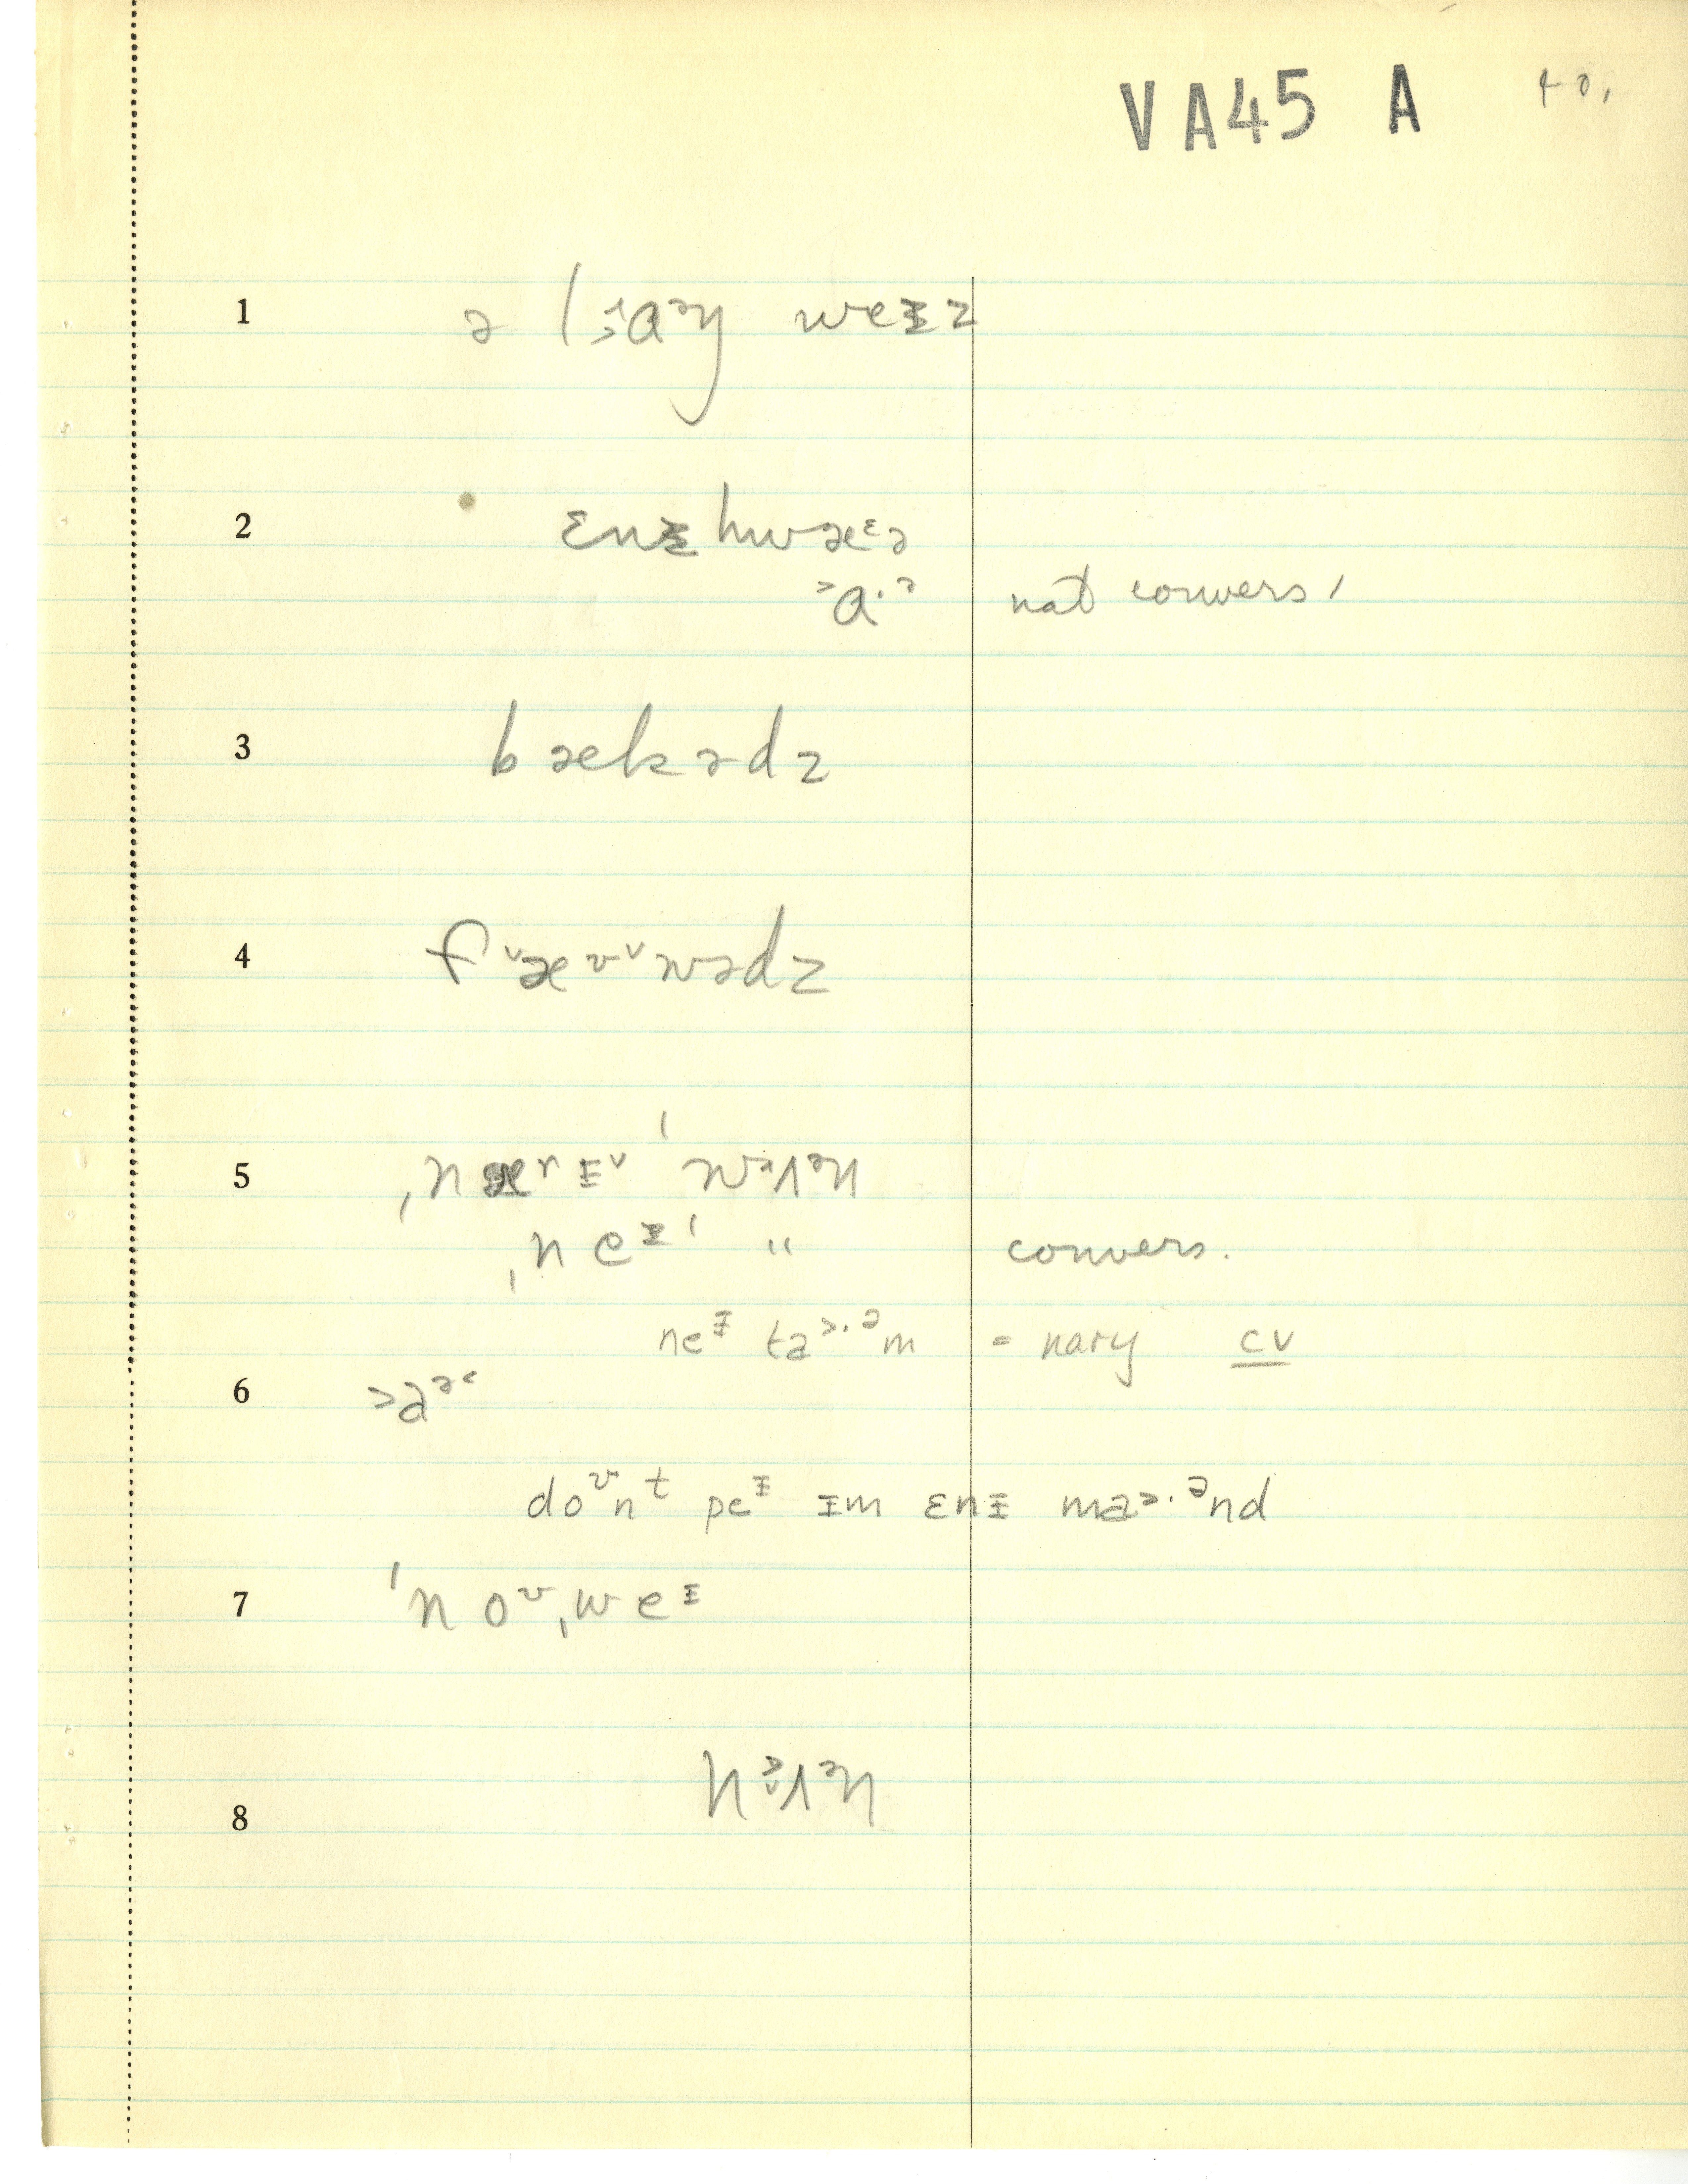 VA45 A 40,
1 ə lɑᵊŋ weɪz
2 ɛnɪ hwæᵋə
˃ɑ·ᵊ nat convers,
3 bækədz
4 fᵛæᵛᵛwədz
5 ˌnæʊɪᵛ ˈwʌᵊn
ˌneɪˈ " convers.
neɪ ta˃·ᵊm = nary cv
6 ˃aᵊ˂
doᵛnᵗ peɪ ɪm ɛnɪ ma˃·ᵊnd
7 ˈnoᵛˌweɪ
8 nʌᵊn